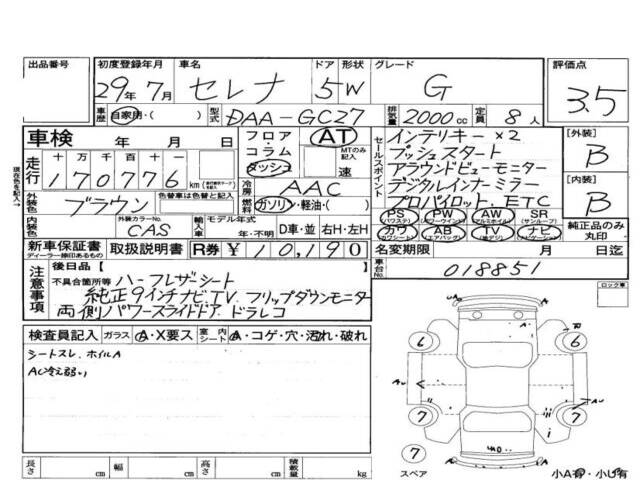 出品番号 初度登録年月 車名 ドア 形状 グレード 評価点
29年 7月 セレナ 5 W G 3.5
車歴 自家用・( ) 型式 DAA-GC27 排気量 2000 cc 定員 8人
車検 年 月 日 フロア コラム ダッシュ AT MTのみ記入 速
走行 十 万 千 百 十 一
170776 km
冷房 AAC
外装色 ブラウン 色替車は色替と記入 燃料 ガソリン・軽油・( )
内装色 外装カラーNo. CAS 輸入車 モデル年式 年・不明 D車・並 右H・左H
セールスポイント
インテリキー×2
プッシュスタート
アラウンドビューモニター
デジタルインナーミラー
プロパイロット、ETC
PS (パワステ) PW (パワーウインド) AW (アルミホイル) SR (サンルーフ)
カワ (カワシート) AB (エアバッグ) TV (地デジ) ナビ (ナビゲーション)
[外装] B
[内装] B
純正品のみ丸印
現在色を記入
新車保証書 ディーラー捺印あるもの 取扱説明書 R券 ¥10,190 名変期限 月 日迄
車台No. 018851
注意事項
後日品[ ]
不具合箇所等 ハーフレザーシート
純正9インチナビTV、フリップダウンモニター
両側パワースライドドア、ドラレコ
ロック車
検査員記入 ガラス A・X要ス 室内シート A・コゲ・穴・汚れ・破れ
シートスレ、ホイルA
AC冷え弱い
6 6
7 7
7
スペア
小A有・小U有
長さ cm 幅 cm 高さ cm 積載量 kg